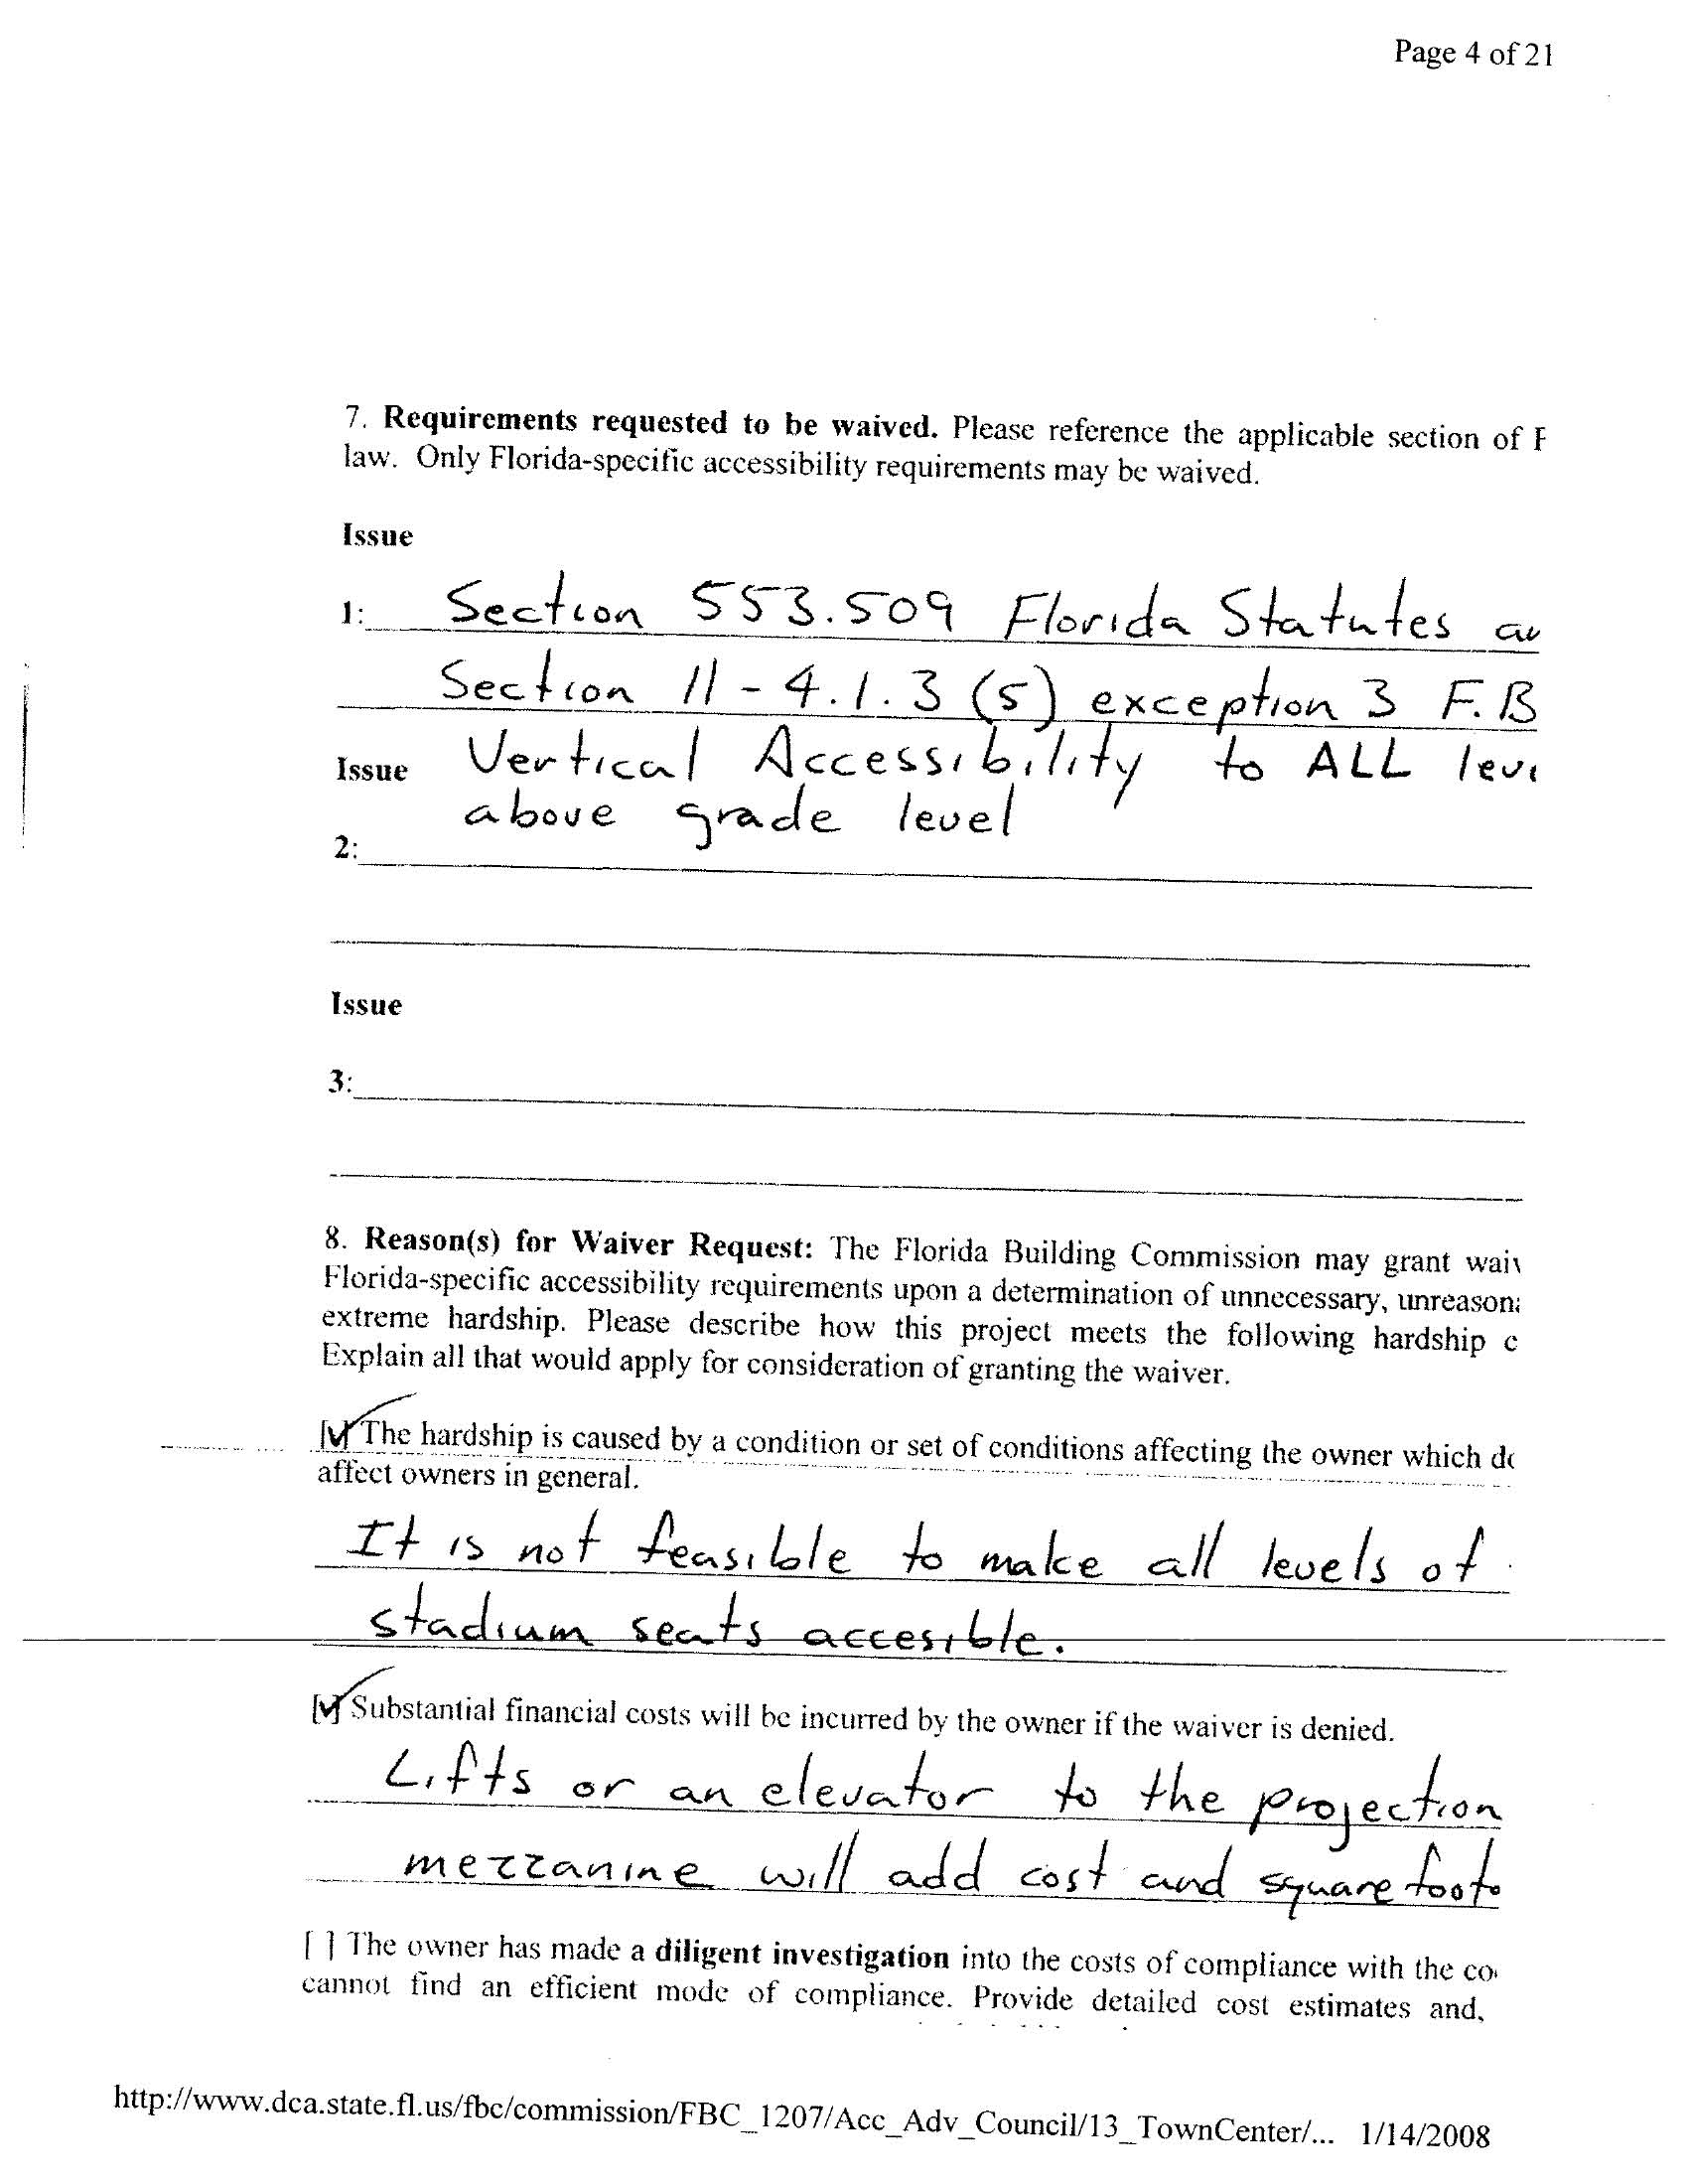 Page 4 of 21
7. Requirements requested to be waived. Please reference the applicable section of F
law. Only Florida-specific accessibility requirements may be waived.
Issue
1: Section 553.509 Florida Statutes
Section 11-4.1.3 (5) exception 3 F.B
Issue Vertical Accessibility to ALL
above grade level
2:
Issue
3:
8. Reason(s) for Waiver Request: The Florida Building Commission may grant
Florida-specific accessibility requirements upon a determination of unnecessary,
extreme hardship. Please describe how this project meets the following hardship c
Explain all that would apply for consideration of granting the waiver.
[✓] The hardship is caused by a condition or set of conditions affecting the owner which
affect owners in general.
It is not feasible to make all levels of
stadium seats accesible.
[✓] Substantial financial costs will be incurred by the owner if the waiver is denied.
Lifts or an elevator to the projection
mezzanine will add cost and square
[ ] The owner has made a diligent investigation into the costs of compliance with the co
cannot find an efficient mode of compliance. Provide detailed cost estimates and,
http://www.dca.state.fl.us/fbc/commission/FBC_1207/Acc_Adv_Council/13_TownCenter/... 1/14/2008